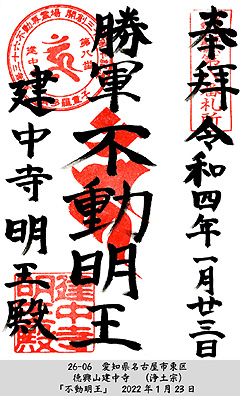 奉拝 令和四年一月廿三日
勝軍不動明王
建中寺 明王殿
建中寺
明王殿
26-06 愛知県名古屋市東区
徳興山建中寺 （浄土宗）
「不動明王」 2022年1月23日